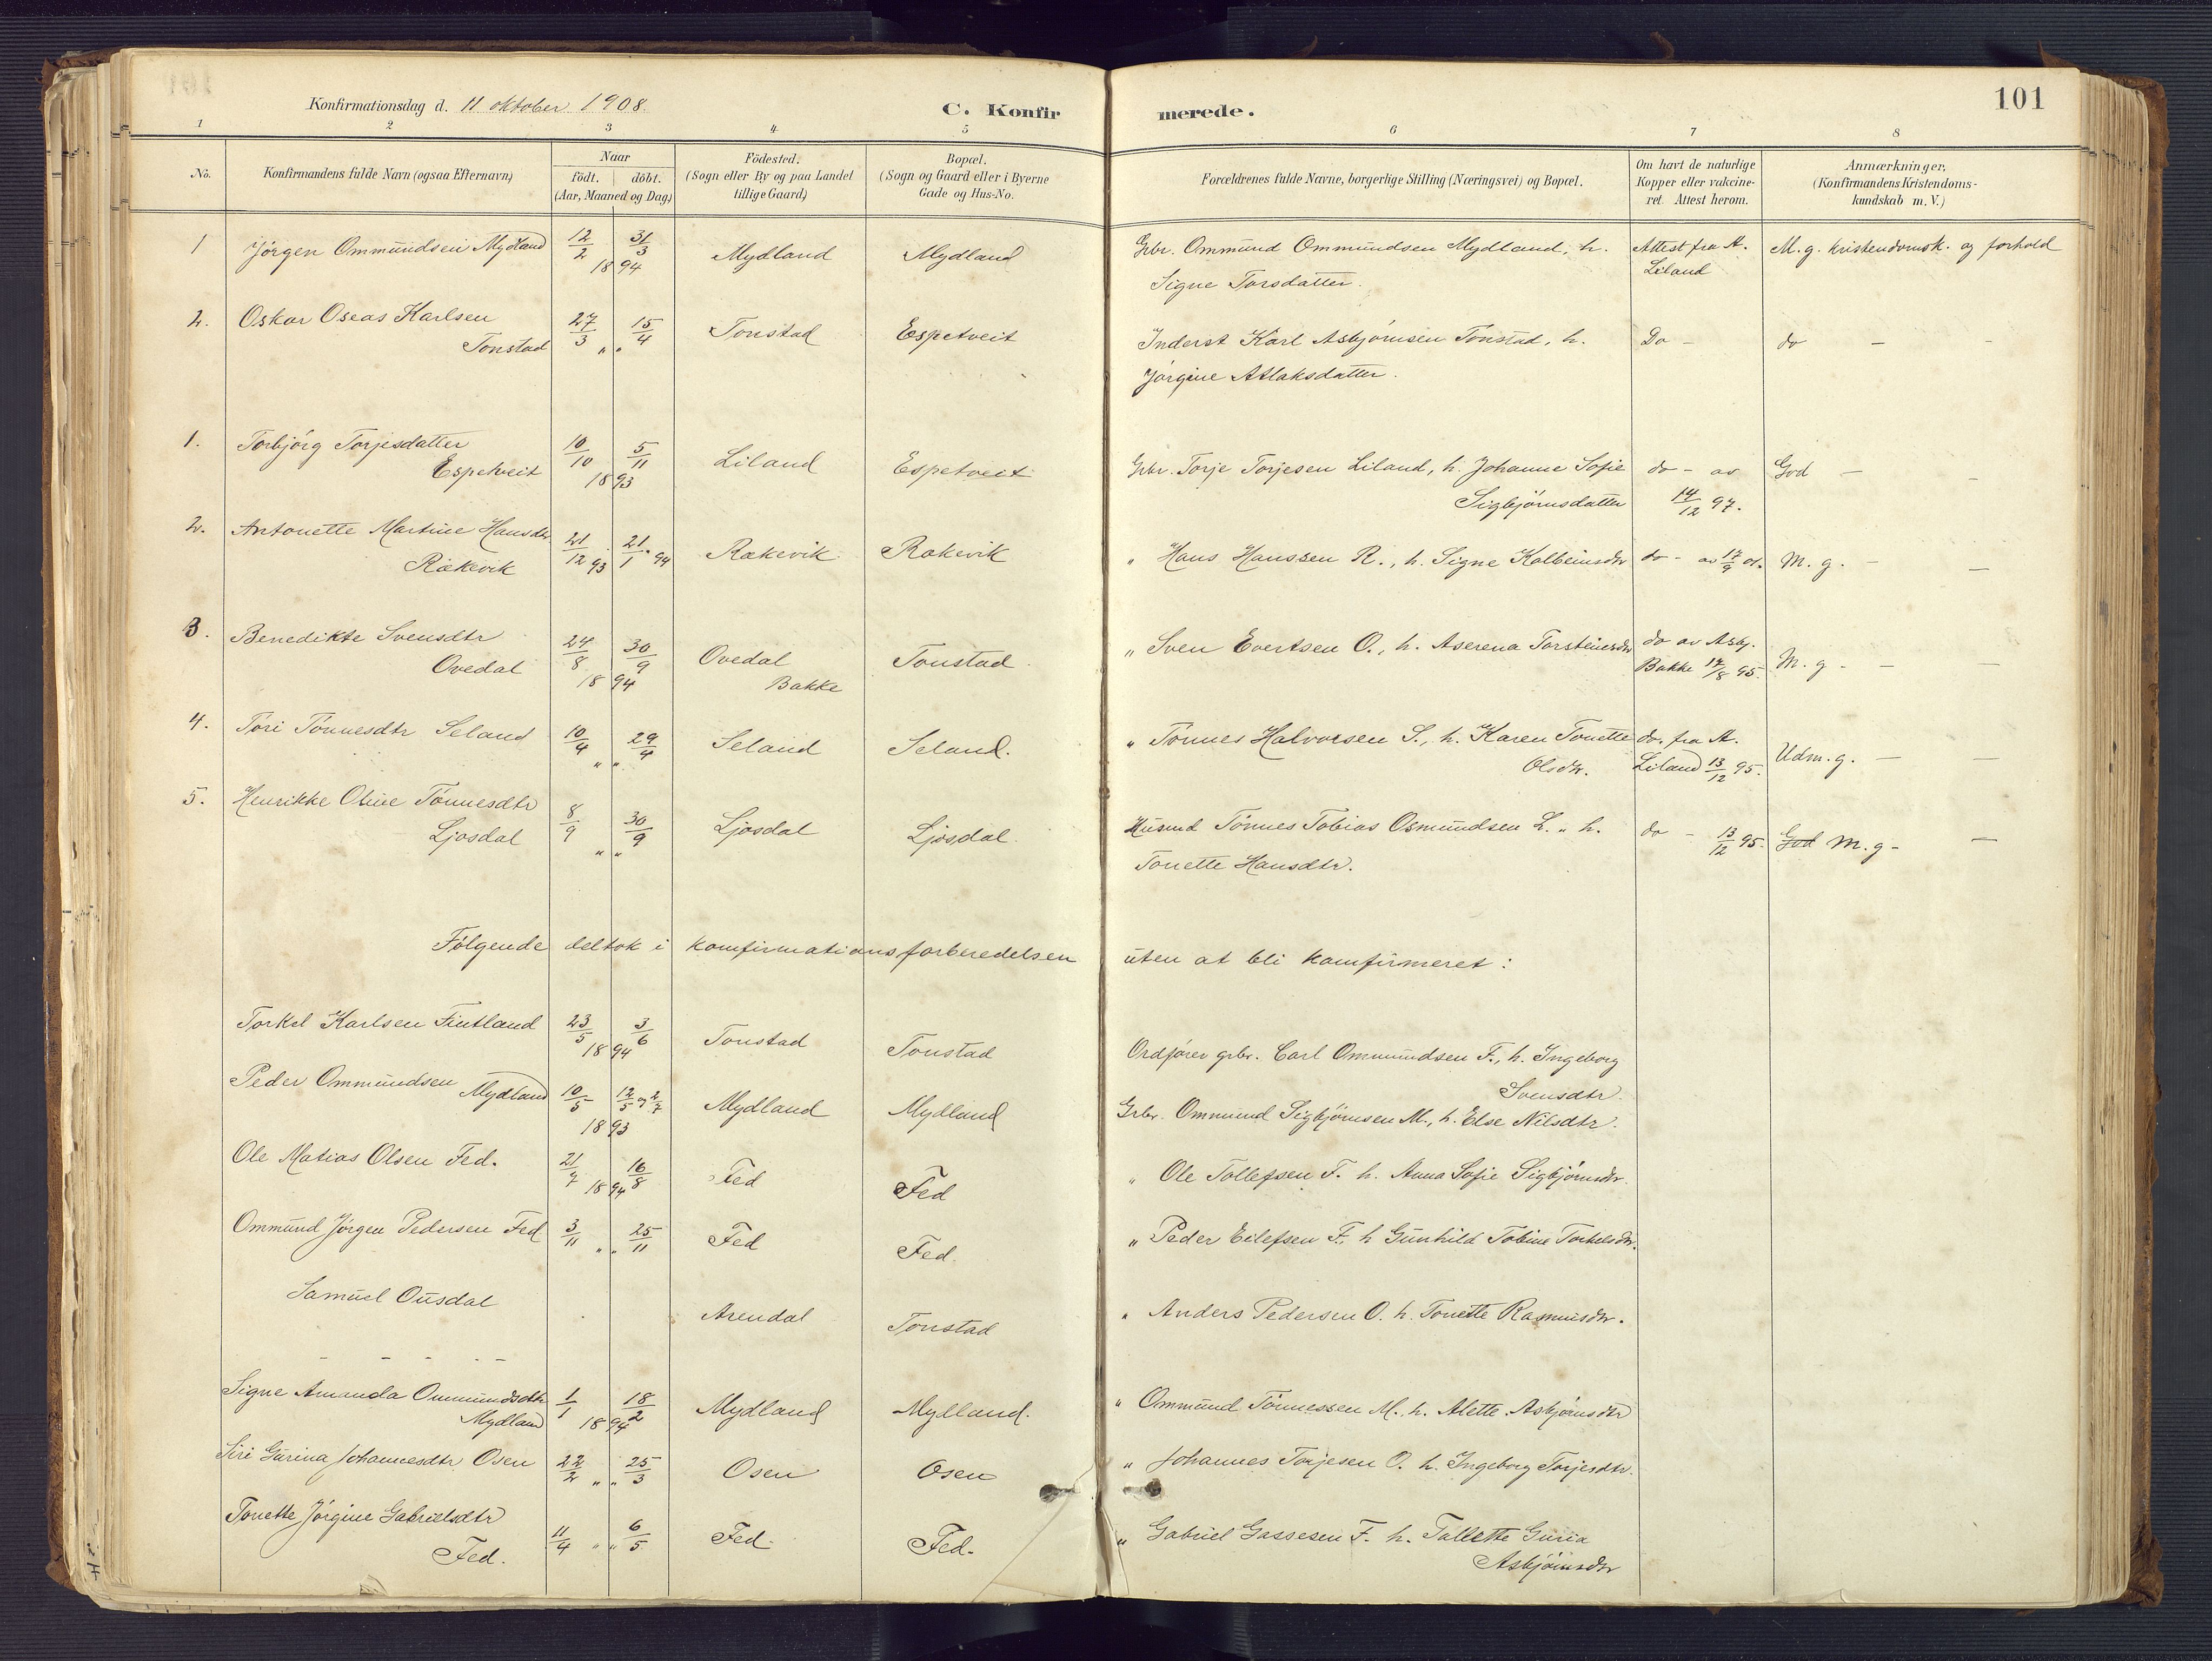 Konfirmationsdag d. 11 oktober 1908.
C. Konfir
merede.
101
1 2 3 4 5 6 7 8
No.
Konfirmandens fulde Navn (ogsaa Efternavn)
Naar
födt. döbt.
(Aar, Maaned og Dag)
Födested.
(Sogn eller By og paa Landet
tillige Gaard)
Bopæl.
(Sogn og Gaard eller i Byerne
Gade og Hus-No.
Forældrenes fulde Navne, borgerlige Stilling (Næringsvei) og Bopæl.
Om havt de naturlige
Kopper eller vakcine-
ret. Attest herom.
Anmærkninger,
(Konfirmandens Kristendoms-
kundskab m. V.)
1 Jörgen Ommundsen Mydland 12/2 31/3 1894 Mydland Mydland Grbr. Ommund Ommundsen Mydland, h. Attest fra A. M. g. kristendomsk. og forhold
Signe Torsdatter. Liland
2. Oskar Oseas Karlsen 27/3 15/4 Tonstad Espetveit Inderst Karl Asbjörnsen Tonstad, h. Do - do - -
Tonstad " "
Jörgine Atlaksdatter.
1. Torbjörg Torjesdatter 10/10 5/11 Liland Espetveit Grbr. Torje Torjesen Liland, h. Johanne Sofie do - av God - -
Espetveit 1893 Sigbjörnsdatter 14/12 97.
2. Antonette Martine Hansdtr 21/12 93 21/1 94 Rækevik Rækevik " Hans Hanssen R., h. Signe Kolbeinsdtr do - av 17/9 01. M. g. - -
Rækevik
3. Benedikte Svensdtr 24/8 30/9 Ovedal Tonstad " Sven Evertsen O., h. Aserena Torsteinsdtr do av Asbj. M. g - -
Ovedal 1894 Bakke Bakke 17/8 95.
4. Töri Tönnesdtr Seland 10/4 29/4 Seland Seland. " Tönnes Halvorsen S., h. Karen Tonette do. fra A. Udm. g. - -
" " Olsdtr. Liland 13/12 95.
5. Henrikke Oline Tönnesdtr 8/9 30/9 Ljosdal Ljosdal. Husmd Tönnes Tobias Osmundsen L. " h. do - 13/12 95. God M. g - -
Ljosdal " " Tonette Hansdtr.
Fölgende deltok i konfirmationsforberedelsen uten at bli konfirmeret:
Torkel Karlsen Fintland 23/5 3/6 1894 Tonstad Tonstad Ordförer grbr. Carl Ommundsen F., h. Ingeborg
Svensdtr.
Peder Ommundsen Mydland 10/5 12/5 og 2/7 1893 Mydland Mydland Grbr. Ommund Sigbjörnsen M., h. Else Nilsdtr.
Ole Matias Olsen Fed. 21/7 16/8 1894 Fed Fed " Ole Tollefsen F. h. Anna Sofie Sigbjörnsdtr.
Ommund Jörgen Pedersen Fed 3/11 25/11 " " Fed Fed. " Peder Eilefsen F., h Gunhild Tobine Torkelsdtr.
Samuel Ousdal Arendal Tonstad " Anders Pedersen O. h. Tonette Rasmusdtr.
- - - - -
Signe Amanda Ommundsdtr 1/1 18/2 Mydland Mydland. " Ommund Tönnessen M. h. Alette Asbjörnsdtr
Mydland 1894
Siri Gurina Johannesdtr Osen 22/2 25/3 " " Osen Osen " Johannes Torjesen O. h. Ingeborg Torjesdtr.
Tonette Jörgine Gabrielsdtr 11/4 6/5 " " Fed Fed. " Gabriel Gassesen F. h. Tallette Guria
Fed. Asbjörnsdtr